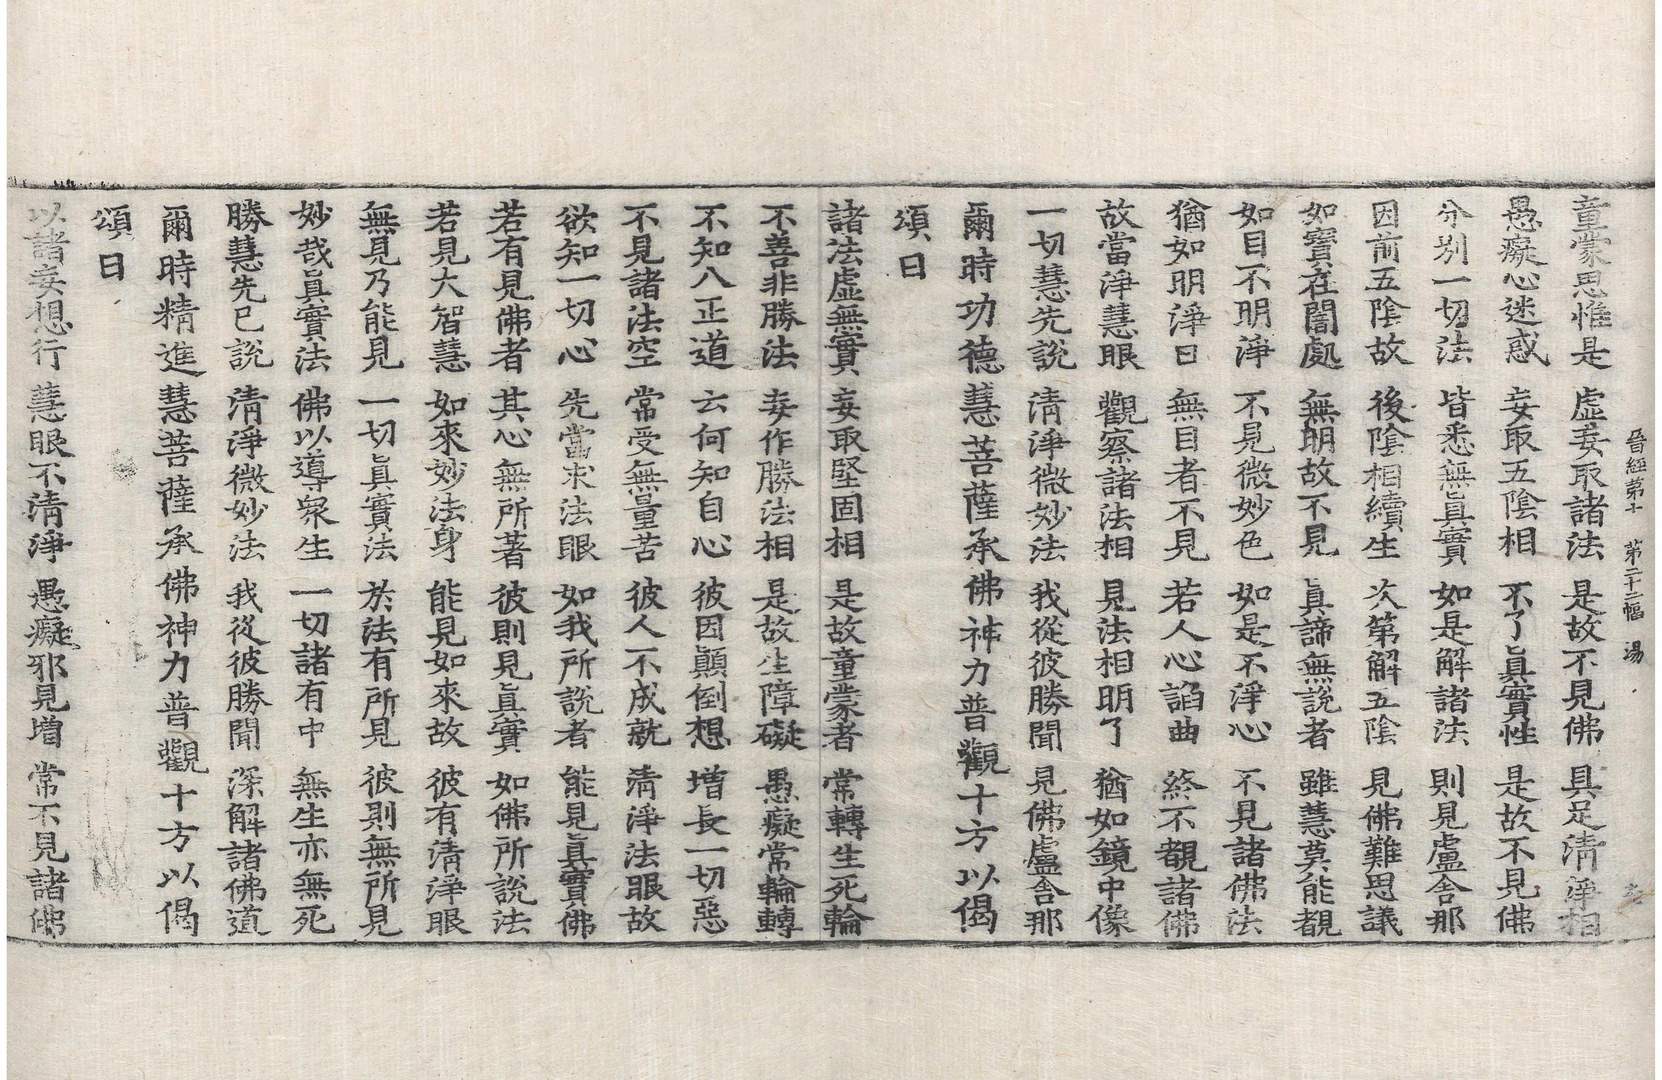 晉經第十　第二十二幅　湯
童蒙思惟是　虛妄取諸法　是故不見佛　具足清淨相
愚癡心迷惑　妄取五陰相　不了眞實性　是故不見佛
分別一切法　皆悉無眞實　如是解諸法　則見盧舍那
因前五陰故　後陰相續生　次第解五陰　見佛難思議
如寶在闇處　無明故不見　眞諦無說者　雖慧莫能覩
如目不明淨　不見微妙色　如是不淨心　不見諸佛法
猶如明淨日　無目者不見　若人心諂曲　終不覩諸佛
故當淨慧眼　觀察諸法相　見法相明了　猶如鏡中像
一切慧先說　清淨微妙法　我從彼勝聞　見佛盧舍那
爾時功德慧菩薩承佛神力普觀十方以偈
頌曰
諸法虛無實　妄取堅固相　是故童蒙者　常轉生死輪
不善非勝法　妄作勝法相　是故生障礙　愚癡常輪轉
不知八正道　云何知自心　彼因顚倒想　增長一切惡
不見諸法空　常受無量苦　彼人不成就　清淨法眼故
欲知一切心　先當求法眼　如我所說者　能見眞實佛
若有見佛者　其心無所著　彼則見眞實　如佛所說法
若見大智慧　如來妙法身　能見如來故　彼有清淨眼
無見乃能見　一切眞實法　於法有所見　彼則無所見
妙哉眞實法　佛以導眾生　一切諸有中　無生亦無死
勝慧先已說　清淨微妙法　我從彼勝聞　深解諸佛道
爾時精進慧菩薩承佛神力普觀十方以偈
頌曰
以諸妄想行　慧眼不清淨　愚癡邪見增　常不見諸佛